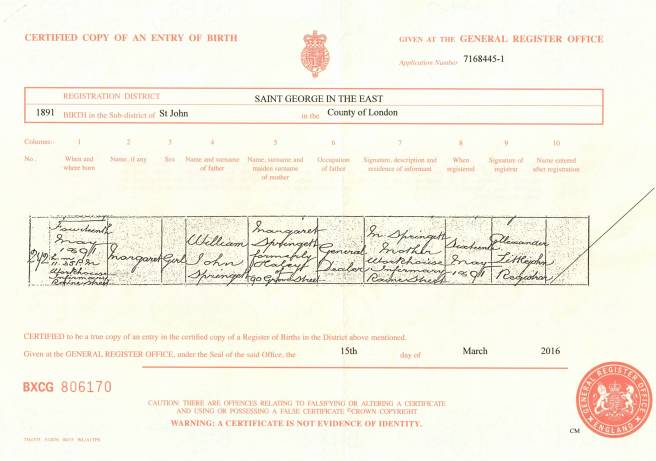 CERTIFIED COPY OF AN ENTRY OF BIRTH
GIVEN AT THE GENERAL REGISTER OFFICE
Application Number 7168445-1
REGISTRATION DISTRICT SAINT GEORGE IN THE EAST
1891 BIRTH in the Sub-district of St John in the County of London
Columns:- 1 2 3 4 5 6 7 8 9 10
No. When and where born Name, if any Sex Name and surname of father Name, surname and maiden surname of mother Occupation of father Signature, description and residence of informant When registered Signature of registrar Name entered after registration
242
Fourteenth
May
1891
11.55 P.M
Workhouse
Infirmary
Raine Street
Margaret
Girl
William
John
Springett
Margaret
Springett
formerly
of
Street
General
Dealer
M Springett
Mother
Workhouse
Infirmary
Raine Street
Sixteenth
May
1891
Alexander
Littlejohn
Registrar
CERTIFIED to be a true copy of an entry in the certified copy of a Register of Births in the District above mentioned.
Given at the GENERAL REGISTER OFFICE, under the Seal of the said Office, the 15th day of March 2016
BXCG 806170
CAUTION: THERE ARE OFFENCES RELATING TO FALSIFYING OR ALTERING A CERTIFICATE
AND USING OR POSSESSING A FALSE CERTIFICATE ©CROWN COPYRIGHT
WARNING: A CERTIFICATE IS NOT EVIDENCE OF IDENTITY.
GENERAL REGISTER OFFICE
ENGLAND
CM